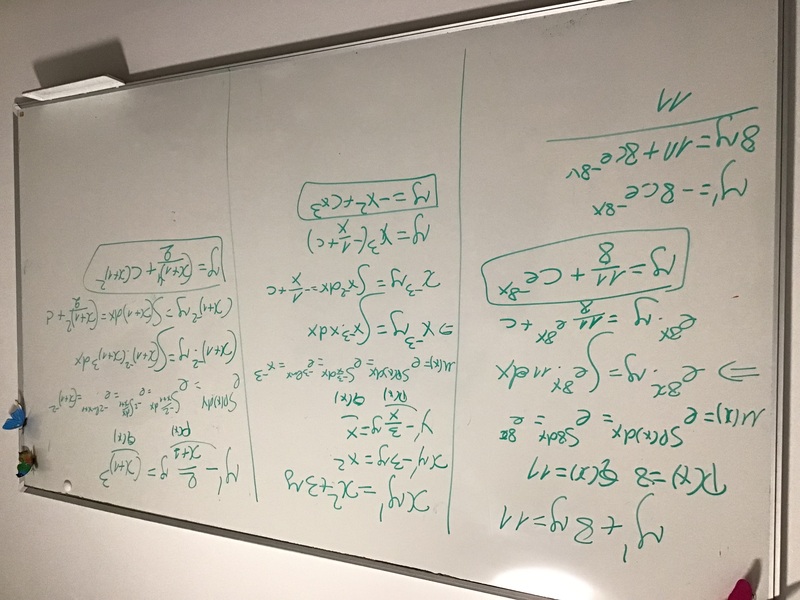 y' + 8y = 11
P(x) = 8 Q(x) = 11
μ(x) = e^{∫P(x)dx} = e^{∫8dx} = e^{8x}
⇒ e^{8x}·y = ∫e^{8x}·11dx
e^{8x}·y = 11/8 e^{8x} + c
y = 11/8 + Ce^{-8x}
y' = -8Ce^{-8x}
8y = 11 + 8Ce^{-8x}
11
xy' = x² + 3y
xy' - 3y = x²
y' - 3/x y = x
P(x) Q(x)
μ(x) = e^{∫P(x)dx} = e^{∫-3/x dx} = e^{-3lnx} = x^{-3}
⇒ x^{-3}y = ∫x^{-3}·x dx
x^{-3}y = ∫x^{-2}dx = -1/x + c
y = x³(-1/x + c)
y = -x² + cx³
y' - 2/(x+1) y = (x+1)³
P(x) Q(x)
e^{∫P(x)dx} = e^{∫-2/(x+1) dx} = (x+1)^{-2}
(x+1)^{-2}·y = ∫(x+1)^{-2}·(x+1)³dx
(x+1)^{-2}y = ∫(x+1)dx = (x+1)²/2 + c
y = (x+1)⁴/2 + C(x+1)²